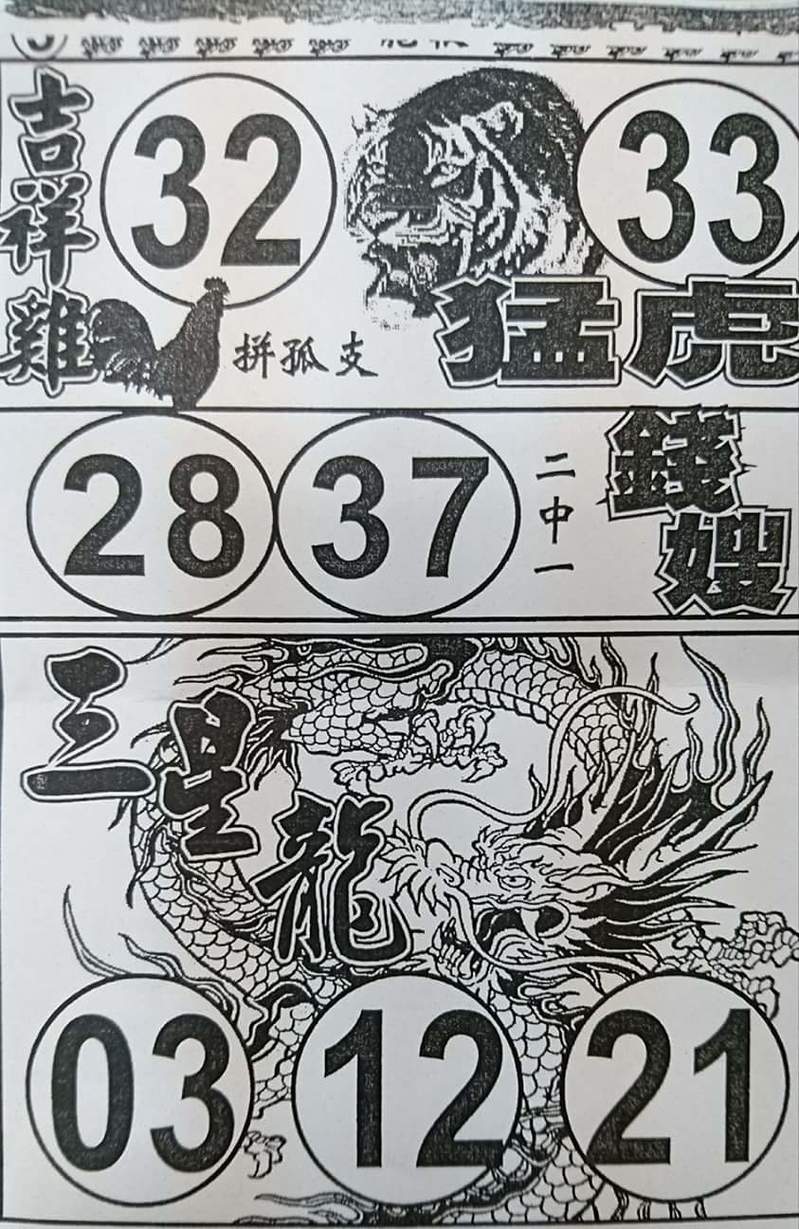 吉祥雞
32
拼孤支
33
猛虎
28
37
二中一
錢嫂
三星龍
03
12
21